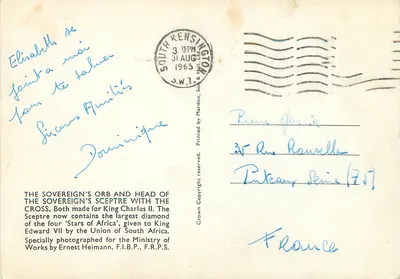 Elisabeth se
joint a moi
pour te saluer
Amitiés
Dominique
THE SOVEREIGN'S ORB AND HEAD OF
THE SOVEREIGN'S SCEPTRE WITH THE
CROSS, Both made for King Charles II. The
Sceptre now contains the largest diamond
of the four 'Stars of Africa', given to King
Edward VII by the Union of South Africa.
Specially photographed for the Ministry of
Works by Ernest Heimann, F.I.B.P., F.R.P.S.
Crown Copyright Reserved. Printed by Mardon, Son &
SOUTH KENSINGTON
3 PM
31 AUG
1965
S.W.7.
35 Rue
Puteaux Seine (75)
France